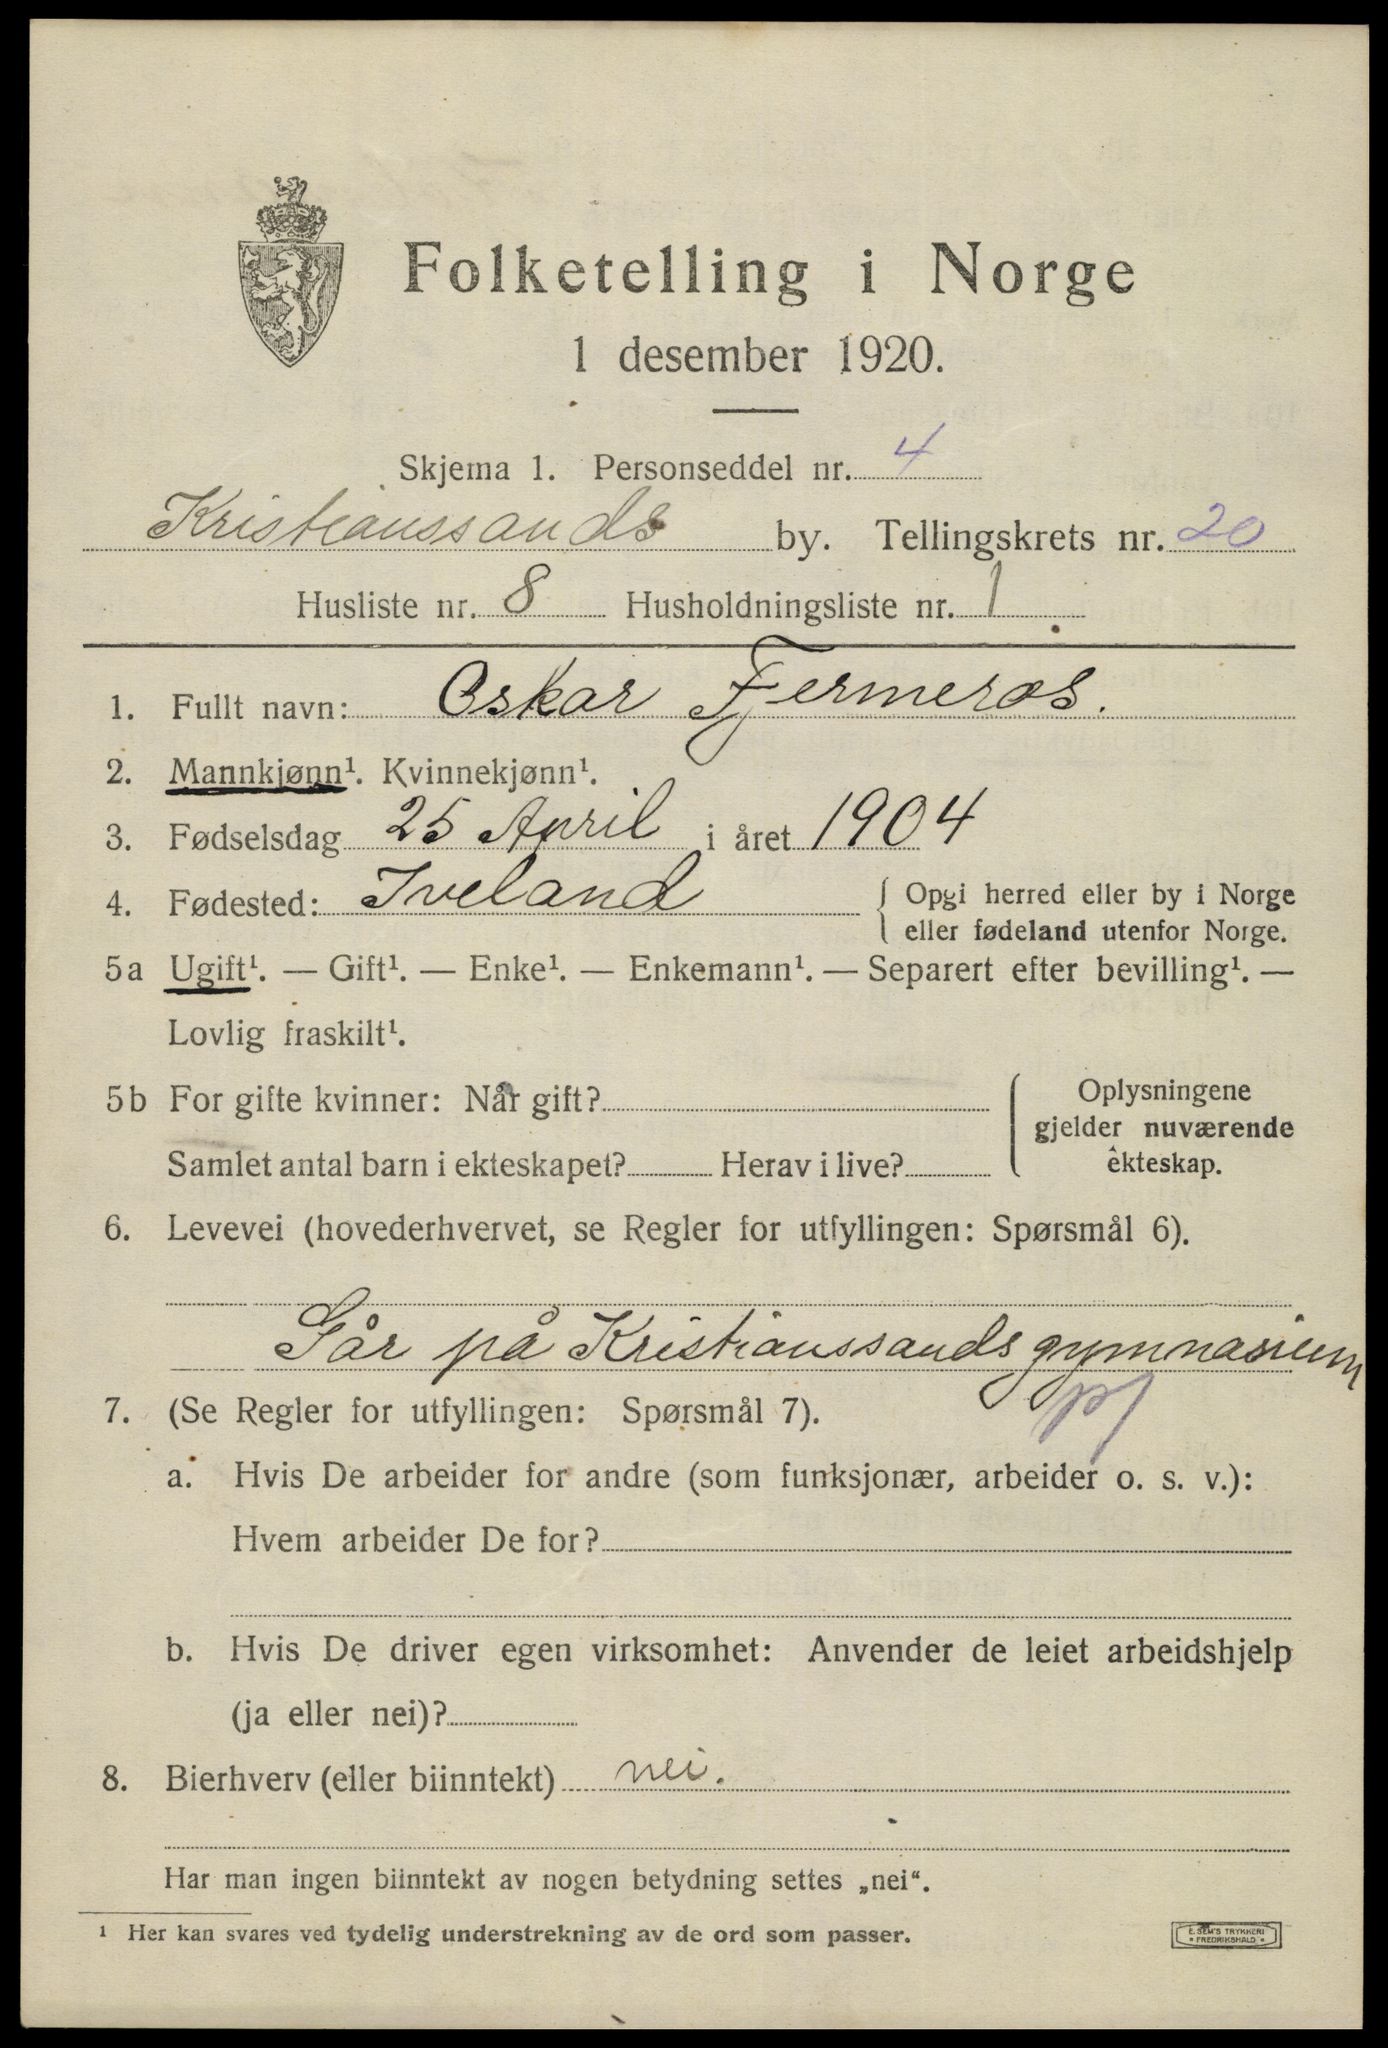 Folketelling i Norge
1 desember 1920.
Skjema 1. Personseddel nr. 4
Kristianssands by. Tellingskrets nr. 20
Husliste nr. 8 Husholdningsliste nr. 1
1. Fullt navn: Oskar Fjermeros.
2. Mannkjønn¹. Kvinnekjønn¹.
3. Fødselsdag 25 April i året 1904
4. Fødested: Iveland { Opgi herred eller by i Norge
eller fødeland utenfor Norge.
5a Ugift¹. — Gift¹. — Enke¹. — Enkemann¹. — Separert efter bevilling¹. —
Lovlig fraskilt¹.
5b For gifte kvinner: Når gift? Oplysningene
gjelder nuværende
Samlet antal barn i ekteskapet? Herav i live? ekteskap.
6. Levevei (hovederhvervet, se Regler for utfyllingen: Spørsmål 6).
Går på Kristianssands gymnasium
7. (Se Regler for utfyllingen: Spørsmål 7).
a. Hvis De arbeider for andre (som funksjonær, arbeider o. s. v.):
Hvem arbeider De for?
b. Hvis De driver egen virksomhet: Anvender de leiet arbeidshjelp
(ja eller nei)?
8. Bierhverv (eller biinntekt) nei.
Har man ingen biinntekt av nogen betydning settes „nei“.
¹ Her kan svares ved tydelig understrekning av de ord som passer.
E. SEM'S TRYKKERI
• FREDRIKSHALD •